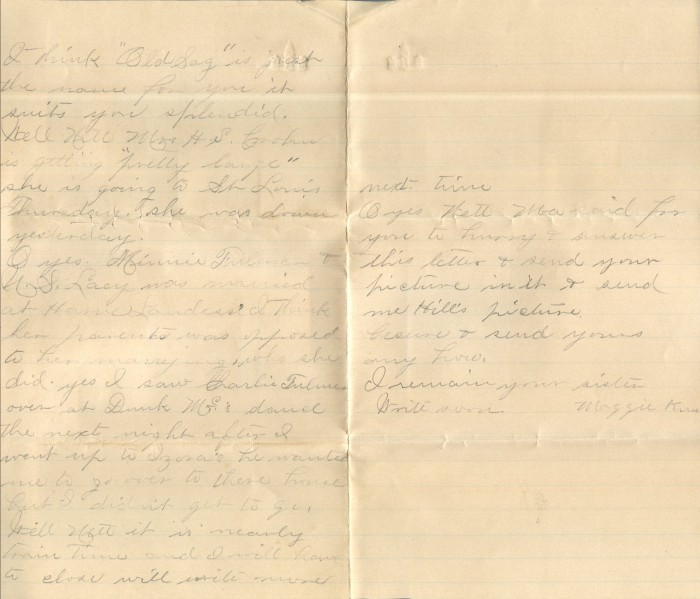 I think "Old Sag" is just
the name for you it
suits you splendid.
Well Nett Mrs H. E.
is getting "pretty large"
she is going to St Louis
Thursday. she was down
yesterday.
O yes. Minnie Fulmer &
S. Lacy was married
at I think
her parents was opposed
to her marrying, she
did. yes I saw Charlie Fulmer
over at Dunk Mc's dance
the next night after I
went up to Izora's he wanted
me to go over to there house
but I didn't get to go.
Well Nett it is nearly
train time and I will have
to close will write more
next time
O yes Nett Ma said for
you to hurry & answer
this letter & send your
picture in it & send
me Hill's picture
besure & send yours
any how.
I remain your sister
Write soon. Maggie